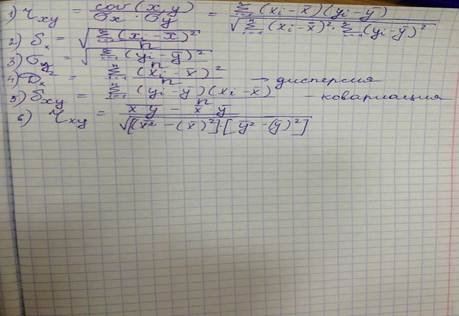 1) r_xy = cov(x,y) / (σx · σy) = Σ(xi - x̄)(yi - ȳ) / √(Σ(xi - x̄)² · Σ(yi - ȳ)²)
2) δx = √(Σ(xi - x)² / n)
3) σy = √(Σ(yi - ȳ)² / n)
4) Σ(xi - x̄)² / n → дисперсия
5) δxy = Σ(yi - y)(xi - x̄) / n - ковариация
6) r_xy = (x y - x̄ ȳ) / √([x̄² - (x̄)²]·[y̅² - (y̅)²])